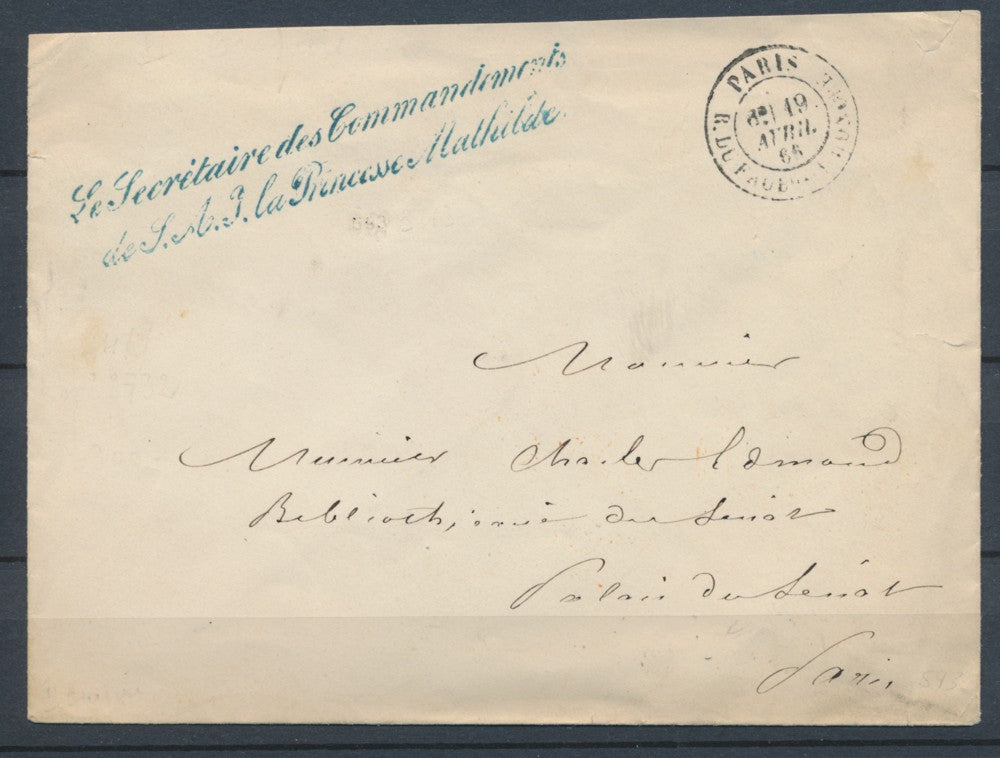 Le Secrétaire des Commandements
de S. A. I. la Princesse Mathilde.
PARIS
R. DU FAUBG ST HONORÉ
19
AVRIL
65
Monsieur
Monsieur Charles Edmond
Bibliothécaire du Sénat
Palais du Sénat
Paris